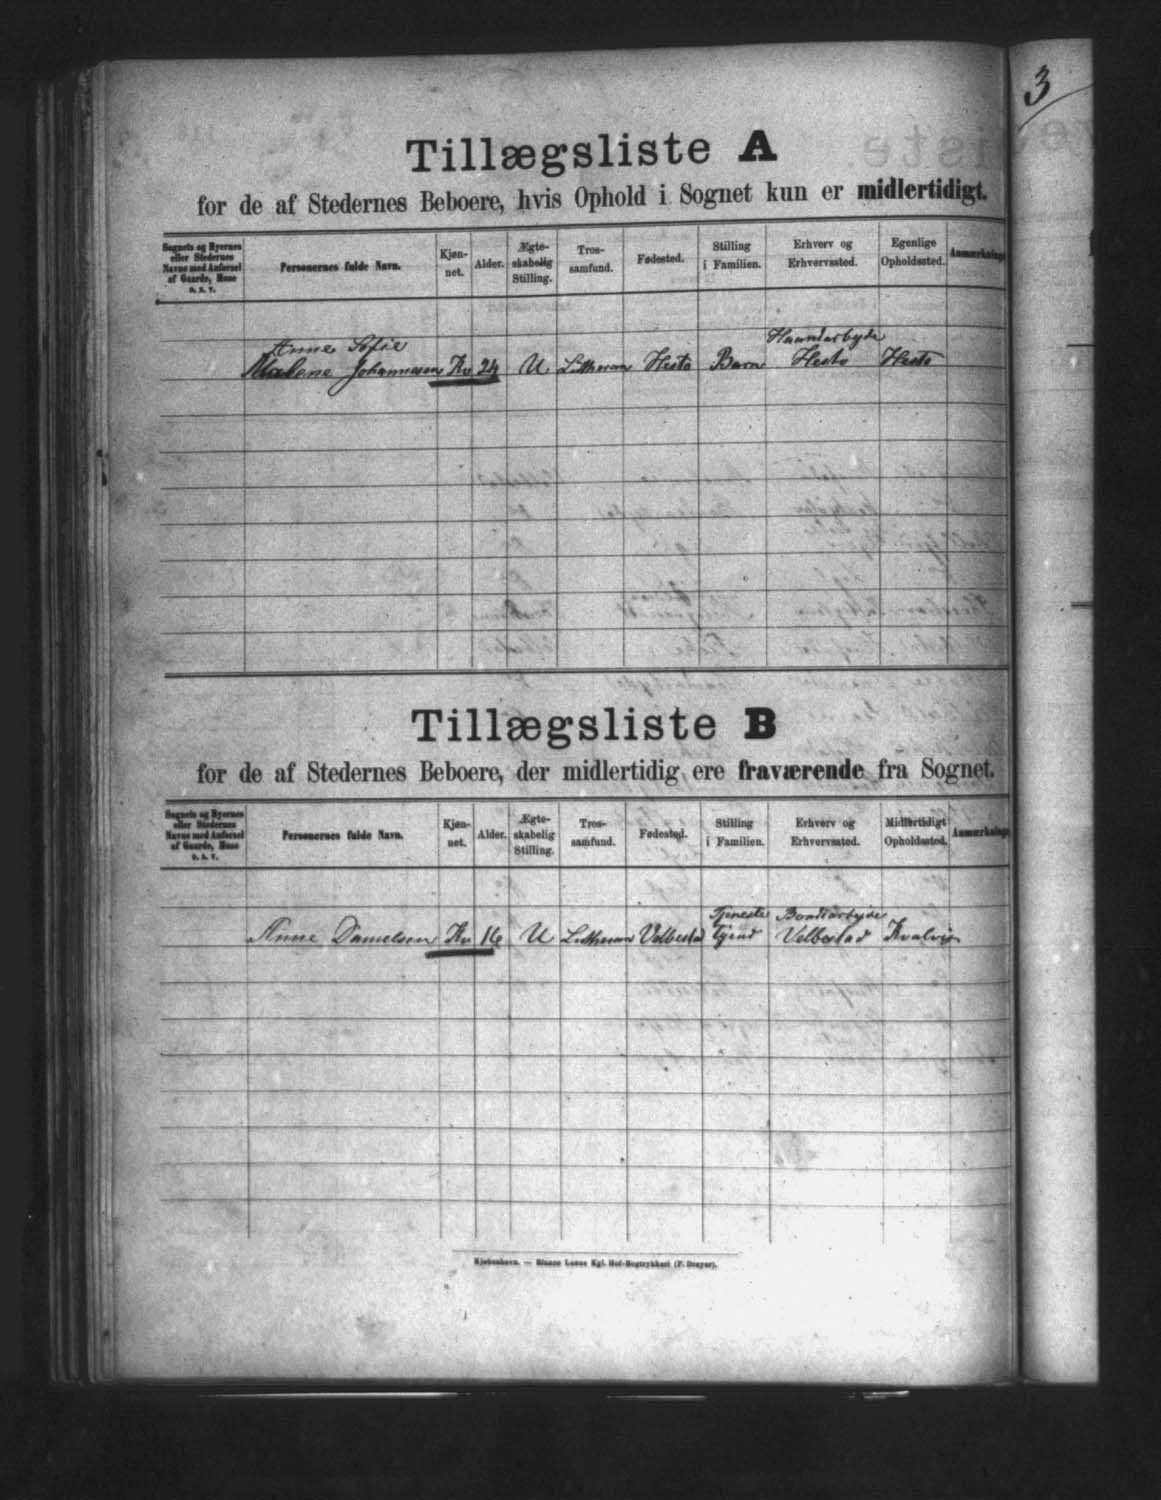 3
Tillægsliste A
for de af Stedernes Beboere, hvis Ophold i Sognet kun er midlertidigt.
Sognets og Byernes eller Stedernes Navne med Anførsel af Gaarde, Huse o. s. v. | Personernes fulde Navn. | Kjøn- net. | Alder. | Ægte- skabelig Stilling. | Tros- samfund. | Fødested. | Stilling i Familien. | Erhverv og Erhvervssted. | Egenlige Opholdssted. | Anmærkninge
Anne Sofie Haandarbyde
Malene Johannesen Kv 24 U Lutheran Hestø Barn Hestø Hestø
Tillægsliste B
for de af Stedernes Beboere, der midlertidig ere fraværende fra Sognet.
Sognets og Byernes eller Stedernes Navne med Anførsel af Gaarde, Huse o. s. v. | Personernes fulde Navn. | Kjøn- net. | Alder. | Ægte- skabelig Stilling. | Tros- samfund. | Fødested. | Stilling i Familien. | Erhverv og Erhvervssted. | Midlertidigt Opholdssted. | Anmærkninge
Tjeneste Bondearbyde
Anne Danielsen Kv 16 U Lutheran Velbestad Velbestad Kvalvig
Kjøbenhavn. — Bianco Lunos Kgl. Hof-Bogtrykkeri (F. Dreyer).